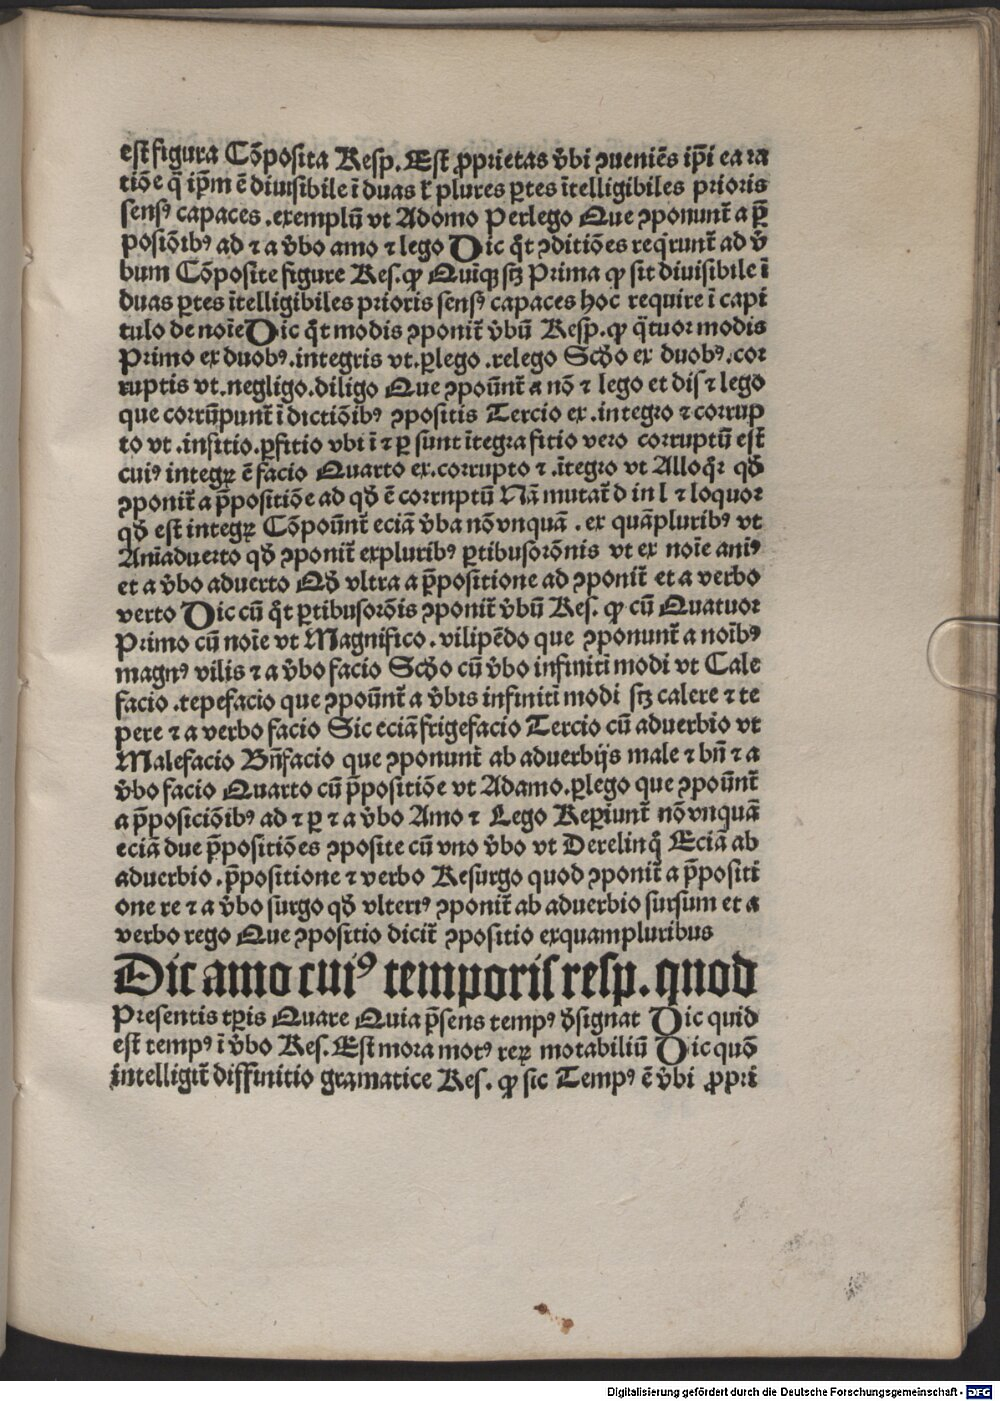 est figura Cōposita Resp. Est ꝓprietas v̄bi ꝯueniēs ip̄i ea ra
tiōe q̄ ip̄m ē diuisibile ī duas ł plures ꝑtes ītelligibiles prioris
sensꝰ capaces .exemplū vt Adomo Perlego Que ꝯponunt̄ a p̄
posiōibꝰ ad ⁊ a v̄bo amo ⁊ lego Dic q̄t ꝯditiōes req̇runt̄ ad v̄
bum Cōposite figure Res. ꝙ Quīqꝫ scꝫ Prima ꝙ sit diuisibile ī
duas ꝑtes ītelligibiles prioris sensꝰ capaces hoc require ī capi
tulo de noīe Dic q̄t modis ꝯponit̄ v̄bū Resp. ꝙ q̈tuor modis
Primo ex duobꝰ .integris vt .ꝑlego .relego Scd̄o ex duobꝰ .cor
ruptis vt .negligo .diligo Que ꝯpoūnt̄ a nō ⁊ lego et dis ⁊ lego
que corrūpunt̄ ī dictiōibꝰ ꝯpositis Tercio ex .integro ⁊ corrup
to vt .insitio .ꝑfitio vbi ī ⁊ ꝑ sunt ītegra fitio vero corruptū est̄
cuiꝰ integꝝ ē facio Quarto ex .corrupto ⁊ .ītegro vt Alloq̇r qd̄
ꝯponit̄ a p̄positiōe ad qd̄ ē corruptū Nā mutat̄ d in l ⁊ loquor
qd̄ est integꝝ Cōpoūnt̄ eciā v̄ba nōvnquā . ex quāpluribꝰ vt
Anīaduerto qd̄ ꝯponit̄ expluribꝰ ꝑtibusorōnis vt ex noīe aniꝰ
et a v̄bo aduerto Qd̄ vltra a p̄positione ad ꝯponit̄ et a verbo
verto Dic cū q̄t ꝑtibusorōis ꝯponit̄ v̄bū Res. ꝙ cū Quatuor
Primo cū noīe vt Magnifico . vilipēdo que ꝯponunt̄ a noībꝰ
magnꝰ vilis ⁊ a v̄bo facio Scd̄o cū v̄bo infiniti modi vt Cale
facio .tepefacio que ꝯpoūnt̄ a v̄bis infiniti modi scꝫ calere ⁊ te
pere ⁊ a verbo facio Sic eciā frigefacio Tercio cū aduerbio vt
Malefacio Bn̄facio que ꝯponunt̄ ab aduerbijs male ⁊ bn̄ ⁊ a
v̄bo facio Quarto cū p̄positiōe vt Adamo .ꝑlego que ꝯpoūnt̄
a p̄posiciōibꝰ ad ⁊ ꝑ ⁊ a v̄bo Amo ⁊ Lego Reꝑiunt̄ nōvnquā
eciā due p̄positiōes ꝯposite cū vno v̄bo vt Derelinq̇ Eciā ab
aduerbio .p̄positione ⁊ verbo Resurgo quod ꝯponit̄ a p̄positi
one re ⁊ a v̄bo surgo qd̄ vlteriꝰ ꝯponit̄ ab aduerbio sursum et a
verbo rego Que ꝯpositio dicit̄ ꝯpositio exquampluribus
Dic amo cuiꝰ temporis resp. quod
Presentis tꝑis Quare Quia p̄sens tempꝰ d̄signat Dic quid
est tempꝰ ī v̄bo Res. Est mora motꝰ reꝝ motabiliū Dic quō
intelligit̄ diffinitio gramatice Res. ꝙ sic Tempꝰ ē v̄bi ꝓpri
Digitalisierung gefördert durch die Deutsche Forschungsgemeinschaft - DFG